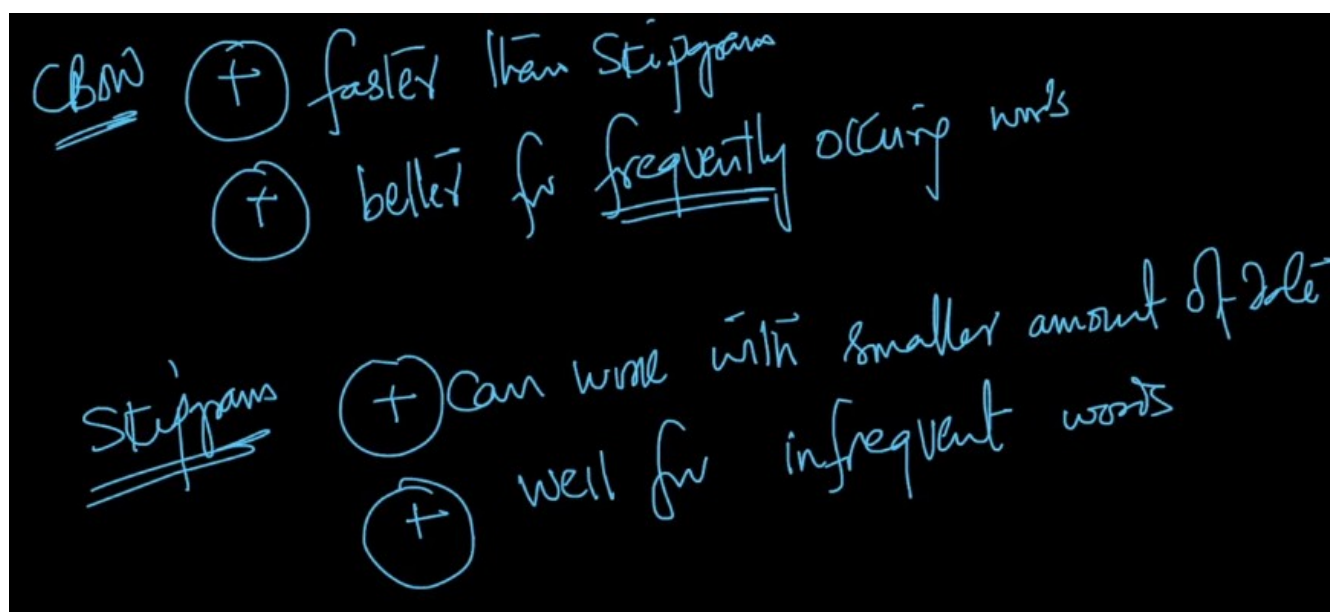 CBOW + faster than Skipgrams
+ better for frequently occuring words
Skipgrams + Can work with smaller amount of data
+ well for infrequent words